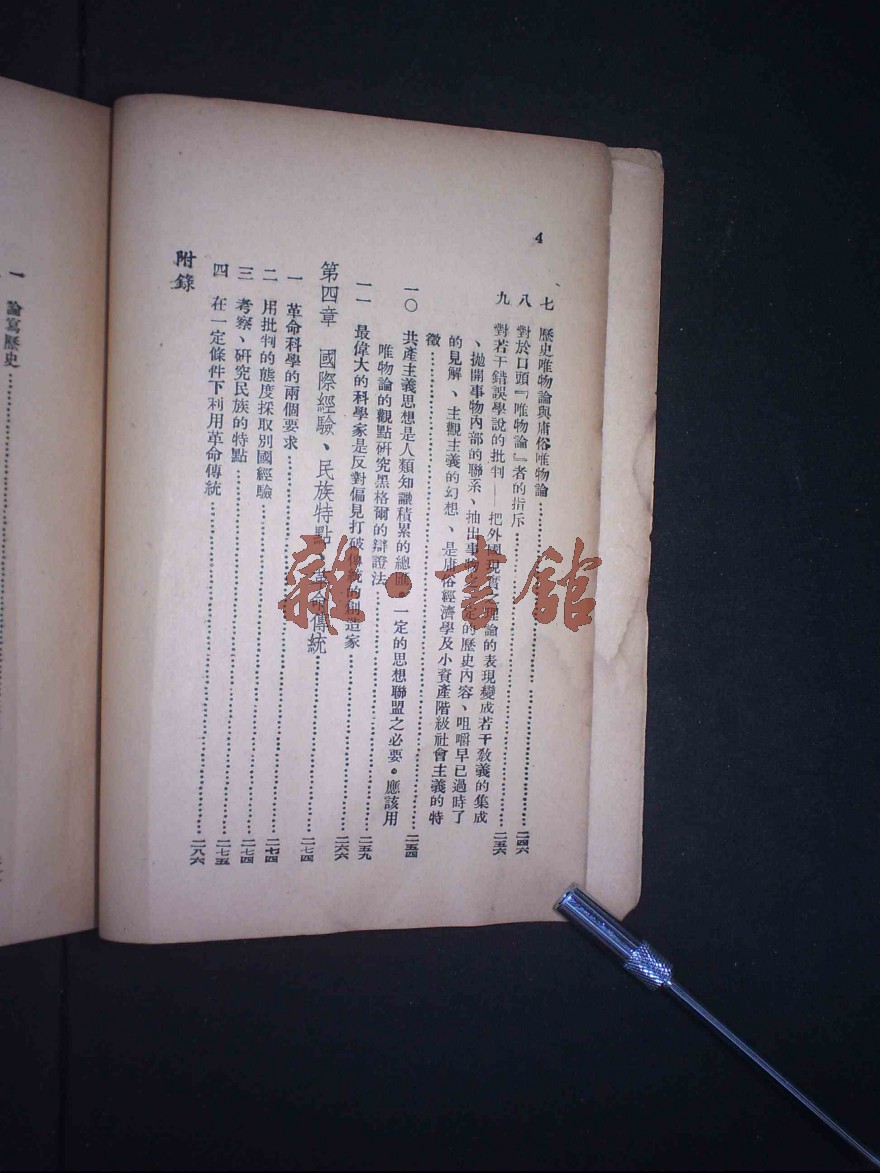 4
七　歷史唯物論與庸俗唯物論……二四六
八　對於口頭『唯物論』者的指斥……二五六
九　對若干錯誤學說的批判——把外國現實之理論的表現變成若干敎義的集成
、拋開事物內部的聯系、抽出事物一定的歷史內容、咀嚼早已過時了
的見解、主觀主義的幻想、是庸俗經濟學及小資產階級社會主義的特
徵……二五四
一〇　共產主義思想是人類知識積累的總匯。一定的思想聯盟之必要。應該用
唯物論的觀點硏究黑格爾的辯證法……二五九
一一　最偉大的科學家是反對偏見打破傳統的創造家……二六六
第四章　國際經驗、民族特點、革命傳統……二七四
一　革命科學的兩個要求……二七四
二　用批判的態度採取別國經驗……二七四
三　考察、硏究民族的特點……二七五
四　在一定條件下利用革命傳統……二八六
附錄
一　論寫歷史……
雜·書館